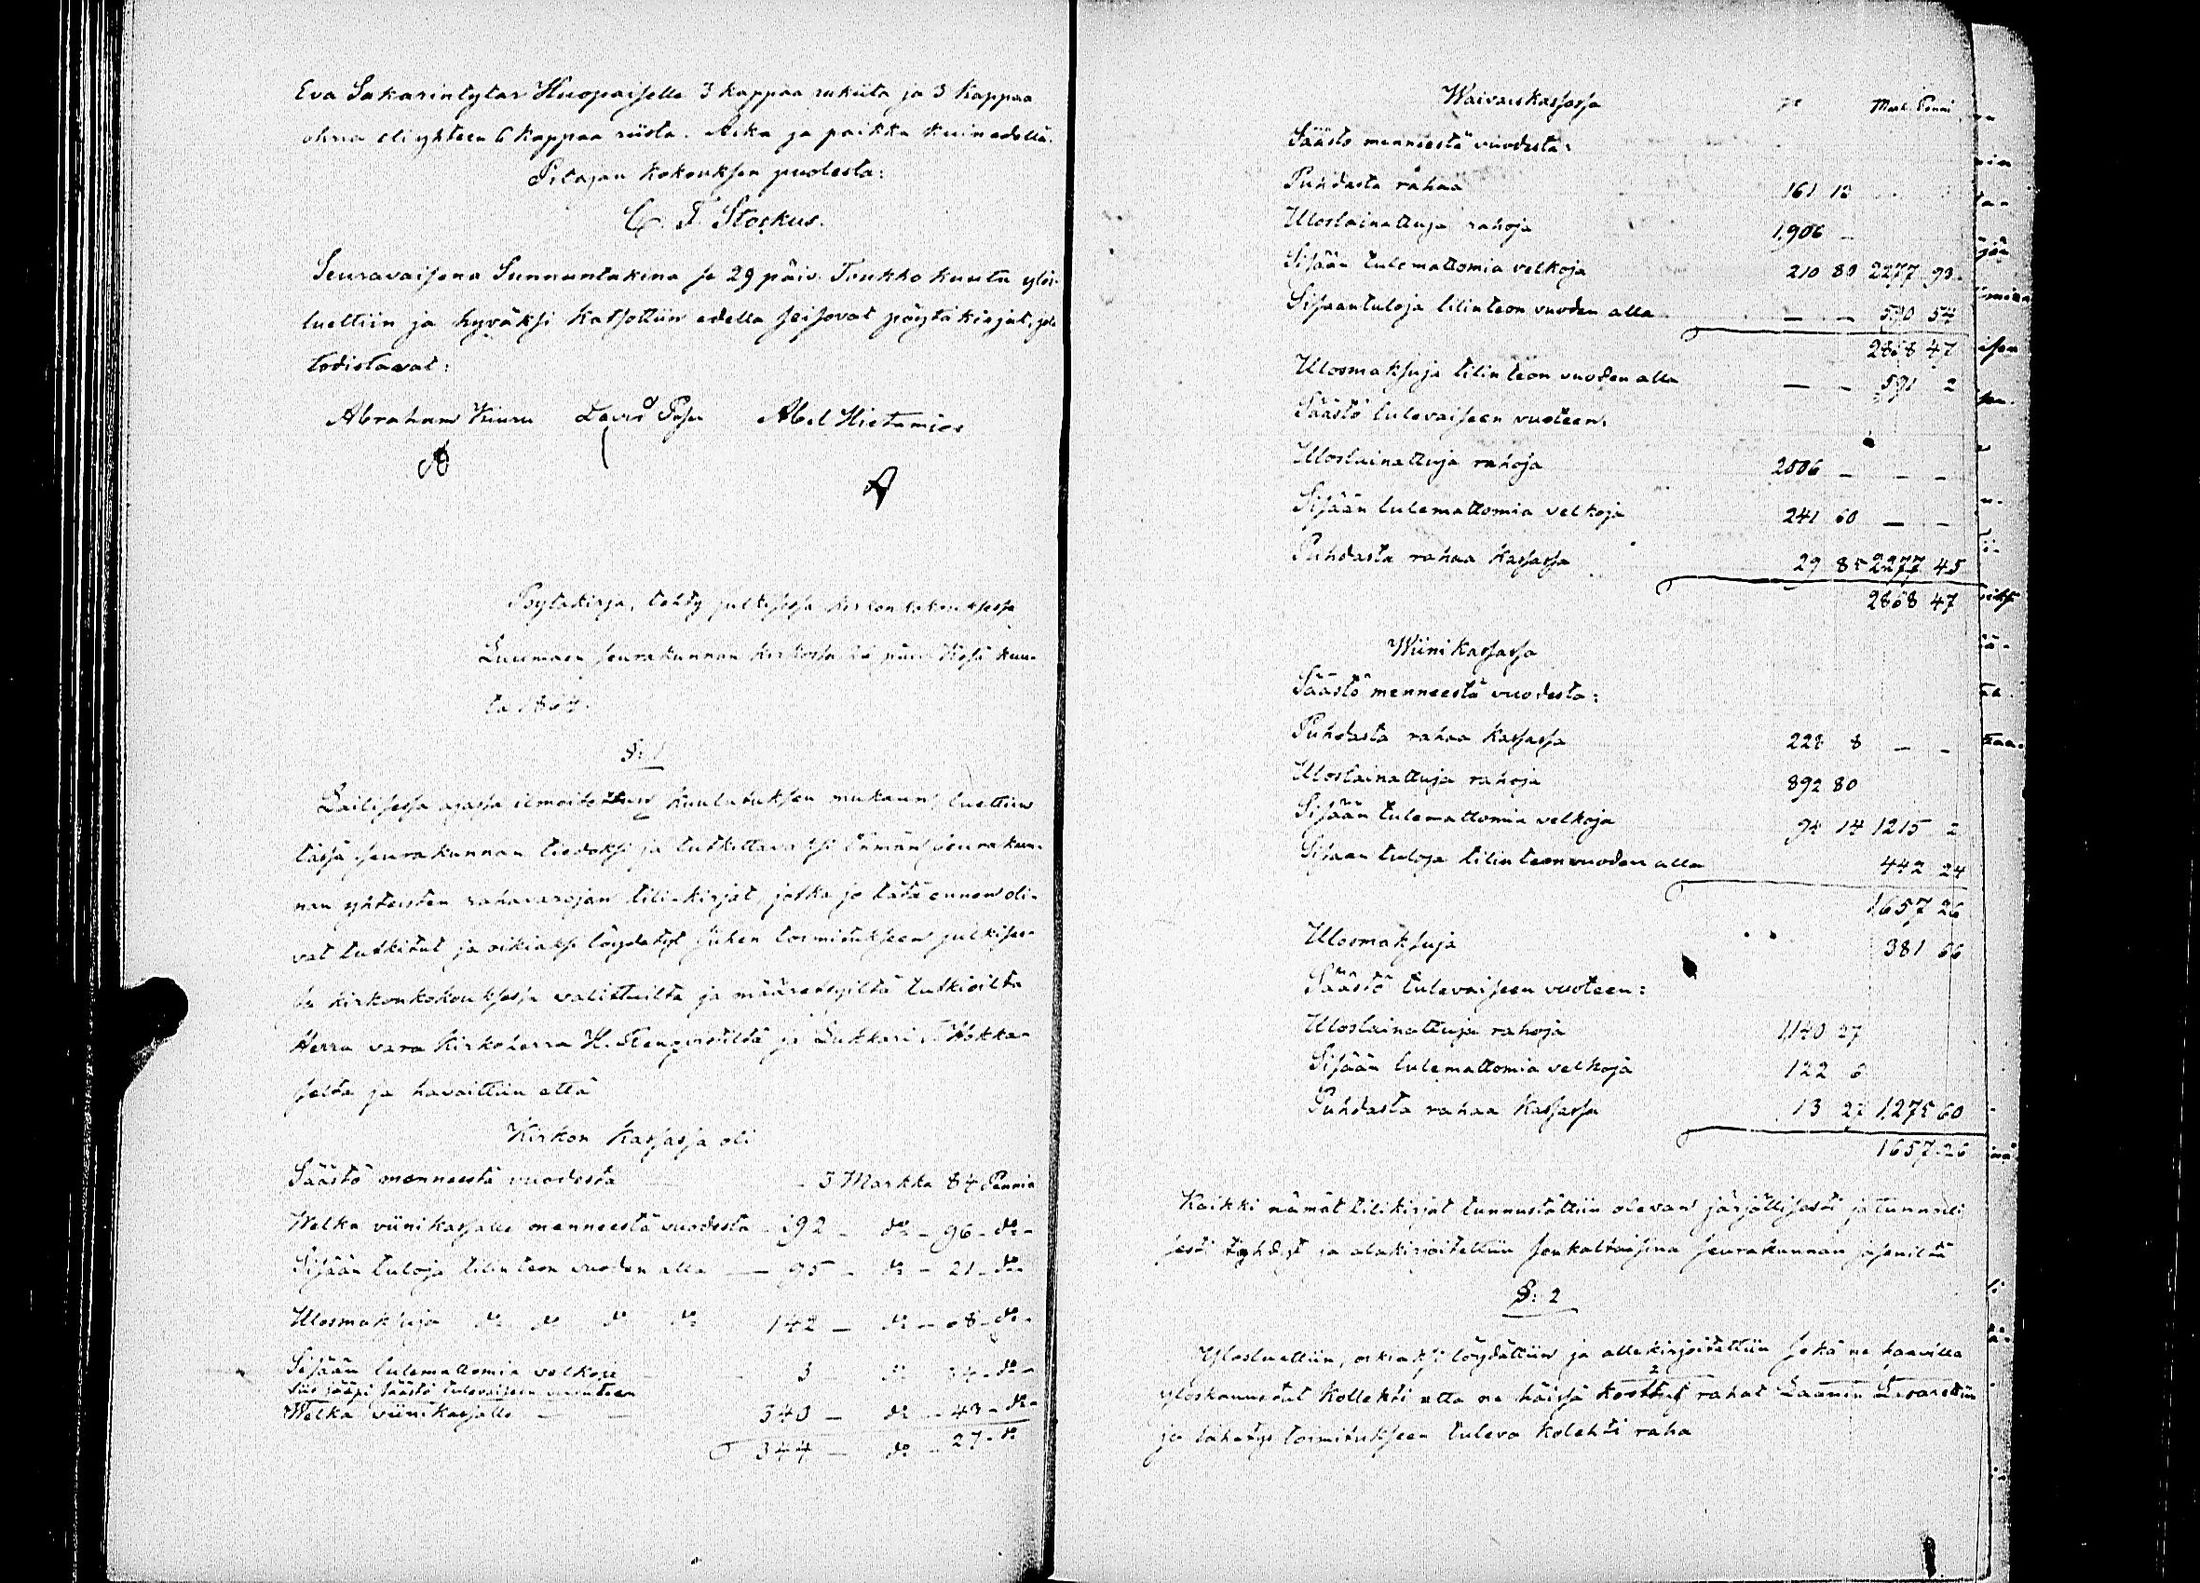 Eva Sakarintytar Huopaiselle 3 kappaa rukiita ja 3 kappaa
ohria eli yhteen 6 kappaa riista. Aika ja paikka kuin edellä.
Pitäjän kokouksen puolesta:
C. F. Stockus.
Seuravaisena Sunnuntakina se 29 päiv. Toukko kuuta ylös-
luettiin ja hyväksi katsottiin edella seisovat pöytäkirjat, jota
todistavat:
Abraham Kiuru David Pesu Abel Hietamies
Pöytäkirja, tehty julkisessa kirkonkokouksessa
Luumäen seurakunnan kirkossa päiv. Kesä kuu-
ta 1864.
§: 1
Lailisessa ajassa ilmoitettun kuulutuksen mukaan, luettiin
tässä seurakunnan tiedoksi ja tutkittavaksi tämän seurakun-
nan yhteisten rahavarojan tili-kirjat, jotka jo tätä ennen oli-
vat tutkitut ja oikiaksi löydetyt siihen toimitukseen julkises-
sa kirkonkokouksessa valituilta ja määrätyiltä tutkioilta
Herra vara Kirkoherra H. ja Lukkari Hokka-
selta ja havaittiin että
Kirkon Kassassa oli
Säästö menneestä vuodesta — 3 Markka 84 Penniä
Welka viinikassalle menneestä vuodesta - 192 - do - 96 - do -
Sisään tuloja tilinteon vuoden alla — 95 - do - 21 - do -
Ulosmaksuja do do do do 142 — do - 08 - do -
Sisään tulemattomia velkoja - 3 do 34 - do -
Siis jääpi säästö tulevaiseen vuoteen
Welka viinikassalle — — 340 — do - 43 - do -
344 — do - 27 - do
Waivaiskassassa Mark. Penni
Säästo menneestä vuodesta:
Puhdasta rahaa 161 13
Uloslainattuja rahoja 1,906 —
Sisään tulemattomia velkoja 210 80 2277 93
Sisaantuloja tilinteon vuoden alla — — 590 54
2868 47
Ulosmaksuja tilinteon vuoden alla — — 591 2
Säästö tulevaiseen vuoteen.
Uloslainattuja rahoja 2006 — — —
Sisään tulemattomia velkoja 241 60 — —
Puhdasta rahaa kassassa 29 85 2277 45
2868 47
Wiinikassassa
Säästö menneestä vuodesta:
Puhdasta rahaa kassassa 228 8 — —
Uloslainattuja rahoja 892 80
Sisään tulemattomia velkoja 94 14 1215 2
Sisaan tuloja tilinteon vuoden alla 442 24
1657 26
Ulosmaksuja 381 66
Säästö tulevaiseen vuoteen:
Uloslainattuja rahoja 1,140 27
Sisään tulemattomia velkoja 122 6
Puhdasta rahaa kassassa 13 27 1,275 60
1657 26
Kaikki nämät tilikirjat tunnustettiin olevan järjällisesti ja tunnoli
sesti tehdyt ja alakirjoitettiin senkaltaisina seurakunnan jäseniltä
§: 2
Ylosluettiin, oikiaksi löydättiin ja allekirjoitettiin sekä ne haavilla
yloskannetut kollekti että ne häissä kootut rahat Läänin Lasarettiin
ja lähetys toimitukseen tuleva kolehti raha